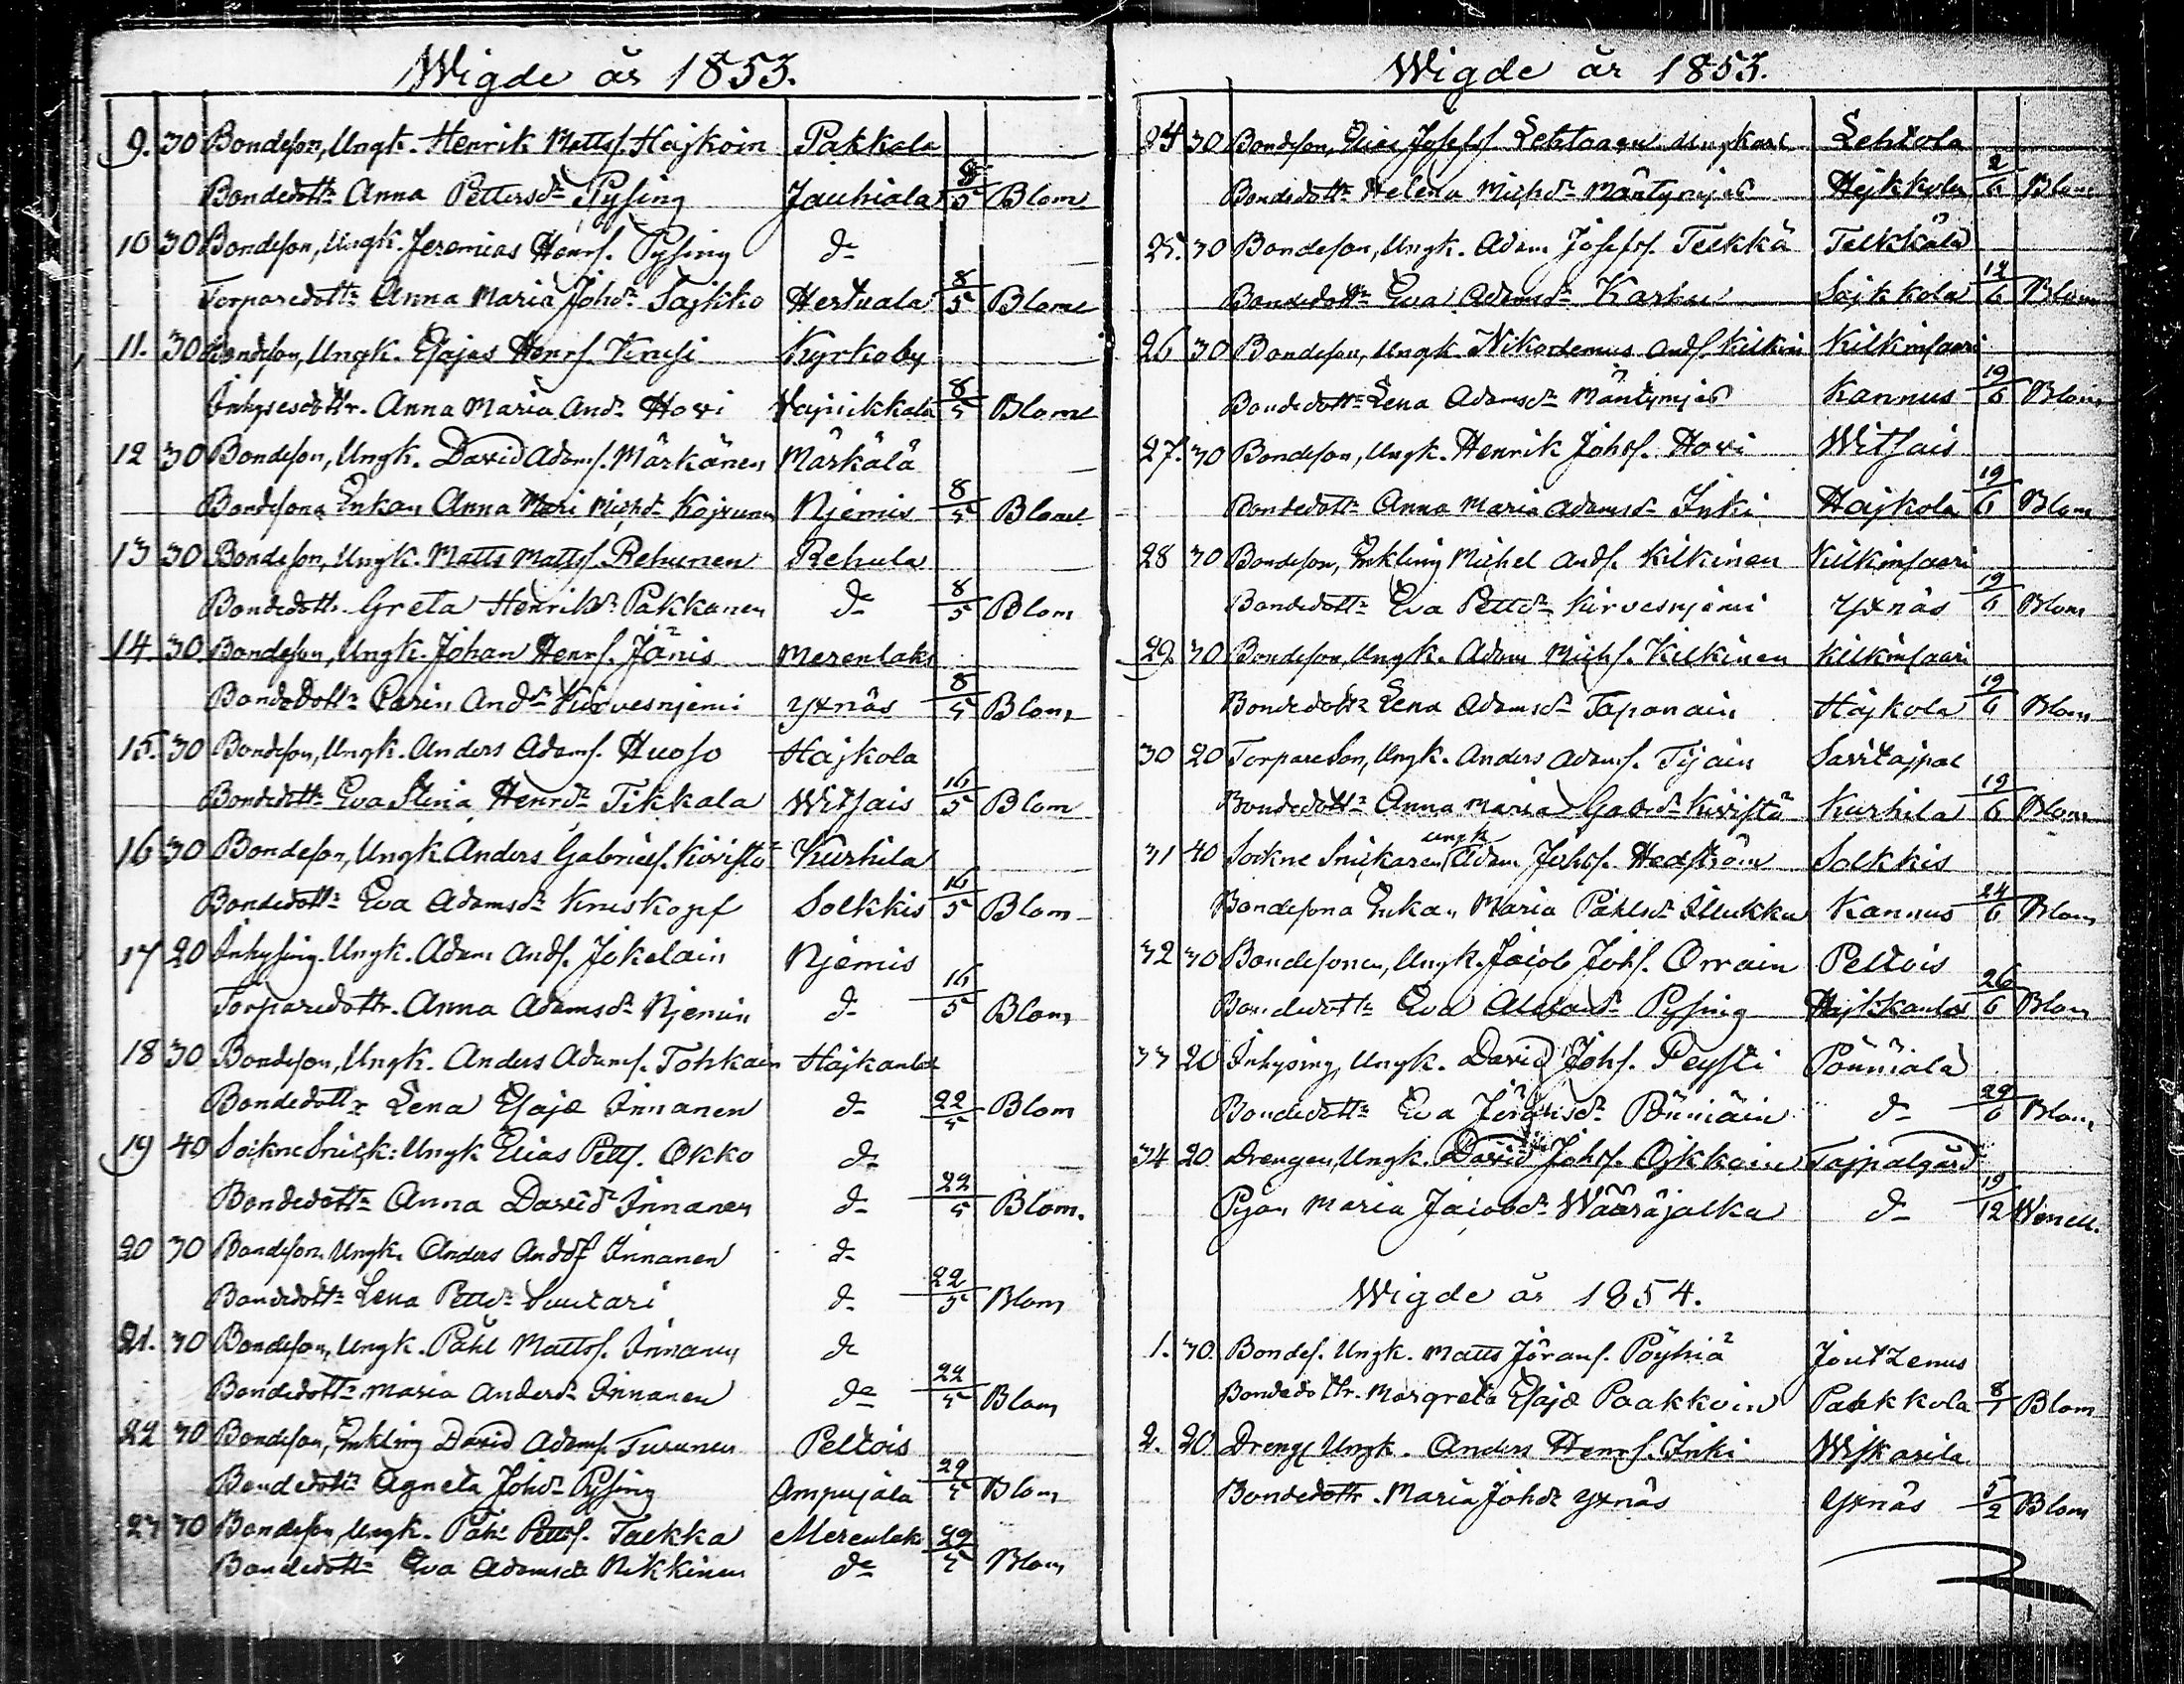 Wigde år 1853.
9. 30 Bondeson, Ungk. Henrik Mattss. Hajkoin Pakkala
Bondedottr Anna Pettersdr Pyssing Jauhiala 8/5 Blom
10 30 Bondeson, Ungk. Jeremias Henrs. Pyssing do
Torparedottr Anna Maria Johdr Sajkko Hertuala 8/5 Blom
11. 30 Bondeson, Ungk. Esajas Henrs. Kousi Kyrkoby
Inhysesdottr. Anna Maria Anddr Howi Vajnikkala 8/5 Blom
12 30 Bondeson, Ungk. David Adams. Märkänen Märkälä
Bondesons Enkan Anna Mari Michdr Njemis 8/5 Blom
13 30 Bondeson, Ungk. Matts Mattss. Rehunen Rehula
Bondedottr. Greta Henriksdr Pakkanen do 8/5 Blom
14. 30. Bondeson, Ungk. Johan Henrs. Jänis Merenlaks
Bondedottr Carin Anddr Kirvesnjemi Yxnäs 8/5 Blom
15. 30 Bondeson, Ungk. Anders Adams. Huoso Hajkola
Bondedottr Eva Stina Henrdr Tikkala Witsais 16/5 Blom
16 30 Bondeson, Ungk. Anders Gabriels. Kiristö Kurhila
Bondedottr Eva Adamsdr Kruskopf Solkkis 16/5 Blom
17 20 Inhysing. Ungk. Adam Ands. Jokelain Njemis
Torparedottr. Anna Adamsdr Njemin do 16/5 Blom
18 30 Bondeson, Ungk. Anders Adams. Tohkain Hajkanlax
Bondedottr Lena Esajæ Innanen do 22/5 Blom
19 40 SocкneSnick: Ungk Elias Petts. Okko do
Bondedottr Anna Daviddr Innanen do 22/5 Blom.
20 30 Bondeson. Ungk. Anders Andss Innanen do
Bondedottr Lena Pettdr Suutari do 22/5 Blom
21. 30 Bondeson, Ungk. Påhl Mattss. Innanen do
Bondedottr Maria Andersdr Innanen do 22/5 Blom
22 30 Bondeson, Enkling David Adams. Turunen Peltois
Bondedottr Agneta Johdr Pyssing Ampujala 29/5 Blom
23 30 Bondeson, Ungk. Påhl Petts. Taekka Merenlaks 29/5
Bondedottr Eva Adamsdr Rikkinen do Blom
Wigde år 1853.
24 30 Bondeson, Josefss. Lehtonen Ungkarl Lehtola
Bondedottr Helena Michdr Mäntynjäs Hejkkola 2/6 Blom
25. 30 Bondeson, Ungk. Adam Josefss. Telkkä Telkkälä
Bondedottr Eva Adamsdr Karhu Sajkkola 12/6 Blom
26 30 Bondeson, Ungk Nikodemus Ands. Kilkin Kilkinsaari
Bondedottr Lena Adamsdr Mäntynjäs Kannus 19/6 Blom
27. 30 Bondeson, Ungk. Henrik Johss. Howi Witsais
Bondedottr Anna Maria Adamsdr Inki Hajkola 19/6 Blom
28 30 Bondeson, Enkling Michel Ands. Kilkinen Kilkinsaari
Bondedottr Eva Pettdr Kirvesnjemi Yxnäs 19/6 Blom
29. 30 Bondeson, Ungk. Adam Michs. Kilkinen Kilkinsaari
Bondedottr Lena Adamsdr Tapanain Hajkola 19/6 Blom
30 20 Torpareson, Ungk. Anders Adams. Tijain Savitajpal
Bondedottr Anna Maria Gabrdr Kiristö Kurhila 19/6 Blom
31 40 Sockne Snickaren ungk Adam Johss. Hedström Solkkis
Bondesons Enkan Maria Påhlsdr Illukka Kannus 24/6 Blom
32 30 Bondesonen, Ungk. Jacob Johs. Orrain Peltois
Bondedottr Eva Pyssing Hajkkanlax 26/6 Blom
33 20 Inhysing, Ungk. David Johs. Peysti Pönniälä
Bondedottr Eva Jöransdr Pönniäin do 29/6 Blom
34 20 Drengen, Ungk. David Johss. Ojkkain Tajpalgård
Pigan Maria Jacobdr Wääräjalka do 19/12 Wenell.
Wigde år 1854.
1. 30. Bondes. Ungk. Matts Jörans. Pöyhiä Joutzenus
Bondedottr. Margreta Esajæ Paakkoin Pakkola 8/1 Blom
2. 20. Drengs Ungk. Anders Henrs. Inki Wiskarila
Bondedottr. Maria Johdr Yxnäs Yxnäs 5/2 Blom